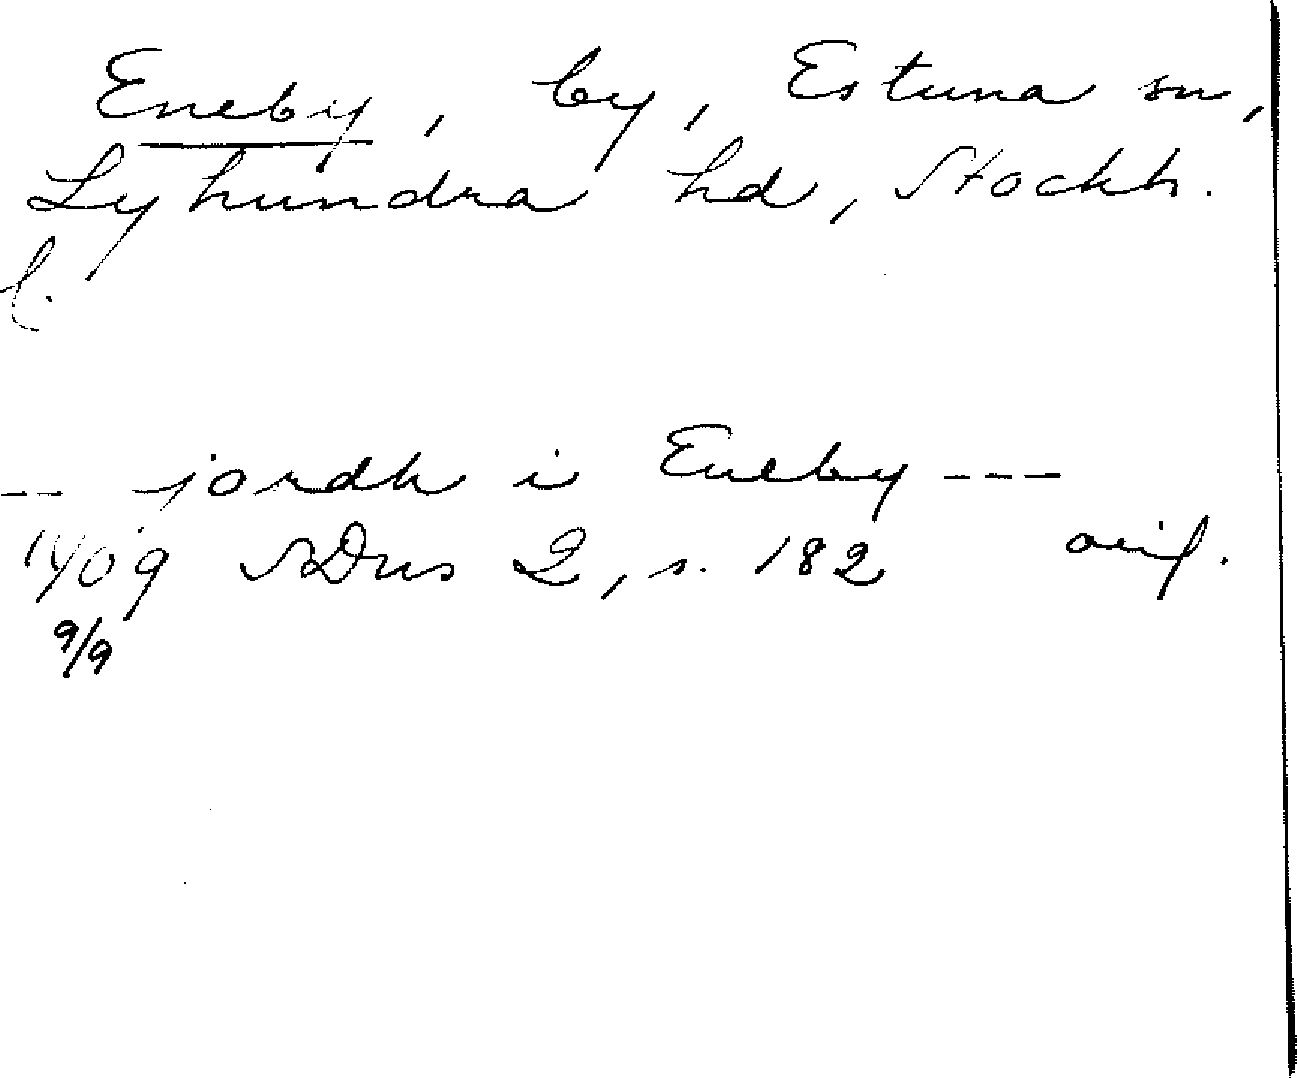 Eneby, by, Estuna sn,
Lyhundra hd, Stockh.
l.
-- jordh i Eneby ---
1409 SDns 2, s. 182 orig.
9/9